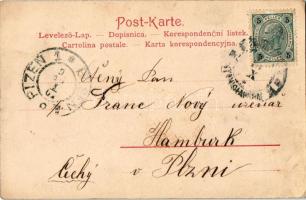 Post-Karte.
Levelező-Lap. — Dopisnica. — Korespondenční lístek.
Cartolina postale. — Karta korespondencyjna.
PLZEŇ 1
5 HELLER 5
Ctěný Pan
Franc Nový
Hamburk
Čechý v Plzni